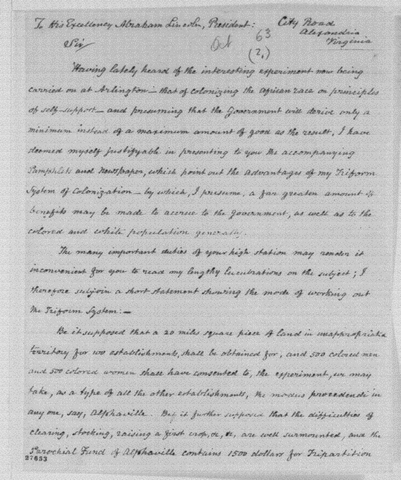 To His Excellency Abraham Lincoln, President:
City Road
Alexandria
Virginia
Oct 63
(2,)
Sir
Having lately heard of the interesting experiment now being
carried on at Arlington — that of colonizing the African race on principles
of self-support — and presuming that the Government will derive only a
minimum instead of a maximum amount of good as the result, I have
deemed myself justifyable in presenting to you the accompanying
Pamphlets and Newspaper, which point out the advantages of my Triform
System of Colonization — by which, I presume, a far greater amount of
benefits may be made to accrue to the Government, as well as to the
colored and white population generally.
The many important duties of your high station may render it
inconvenient for you to read my lengthy lucubrations on the subject; I
therefore subjoin a short statement showing the mode of working out
the Triform System: —
Be it supposed that a 20 miles square piece of land in unappropriated
territory for 100 establishments, shall be obtained for, and 500 colored men
and 500 colored women shall have consented to, the experiment, we may
take, as a type of all the other establishments, the modus procedendi in
any one, say, Alphaville. Be it further supposed that the difficulties of
clearing, stocking, raising a first crop, &c, &c, are well surmounted, and the
Parochial Fund of Alphaville contains 1500 dollars for Tripartition
27653